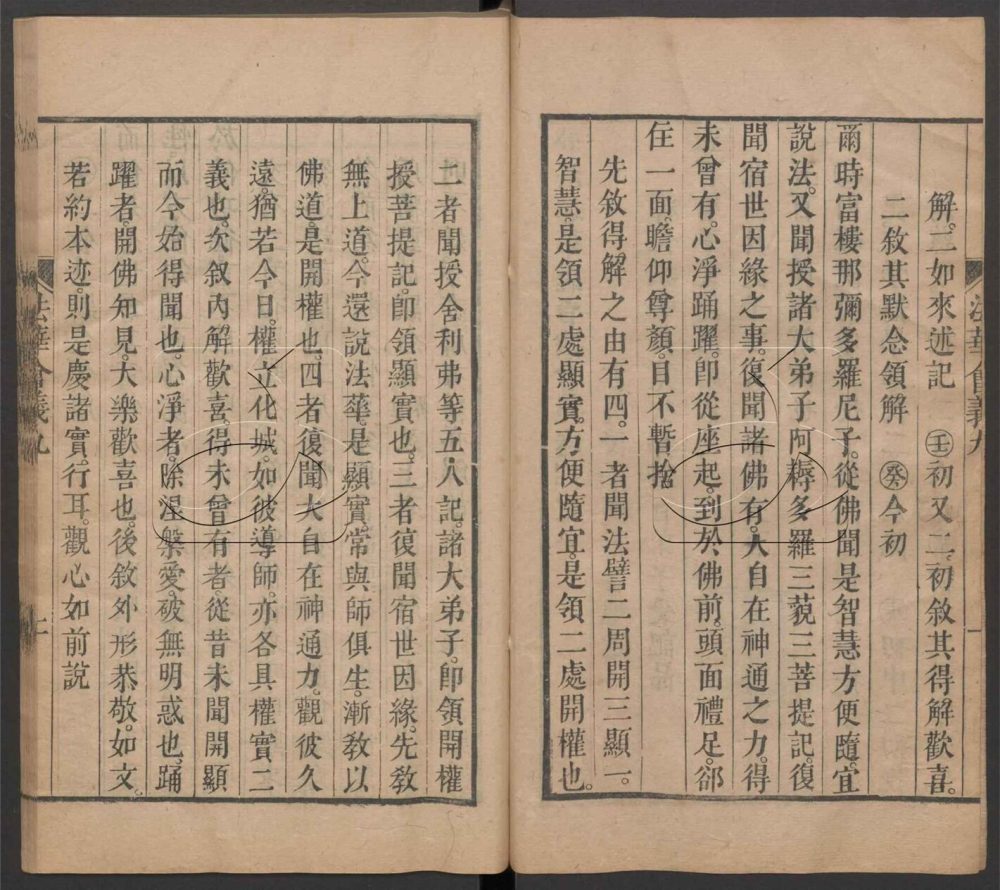 解。二如來述記　㊂壬初又二。初敘其得解歡喜。
二敘其默念領解　癸今初
爾時富樓那彌多羅尼子。從佛聞是智慧方便隨宜
說法。又聞授諸大弟子阿耨多羅三藐三菩提記。復
聞宿世因緣之事。復聞諸佛有大自在神通之力。得
未曾有。心淨踊躍。卽從座起。到於佛前。頭面禮足。郤
住一面。瞻仰尊顏。目不暫捨
先敘得解之由有四。一者聞法譬二周開三顯一。
智慧。是領三處顯實。方便隨宜。是領二處開權也。
法華會義九
一
二者聞授舍利弗等五人記。諸大弟子。卽領開權
授菩提記。卽領顯實也。三者復聞宿世因緣。先敎
無上道。今還說法華。是顯實。常與師俱生。漸敎以
佛道。是開權也。四者復聞大自在神通力。觀彼久
遠。猶若今日。權立化城。如彼導師。亦各具權實二
義也。次叙內解歡喜。得未曾有者。從昔未聞開顯
而今始得聞也。心淨者。除涅槃愛。破無明惑也。踊
躍者。開佛知見。大樂歡喜也。後敘外形恭敬。如文。
若約本迹。則是慶諸實行耳。觀心如前說
法華會義九